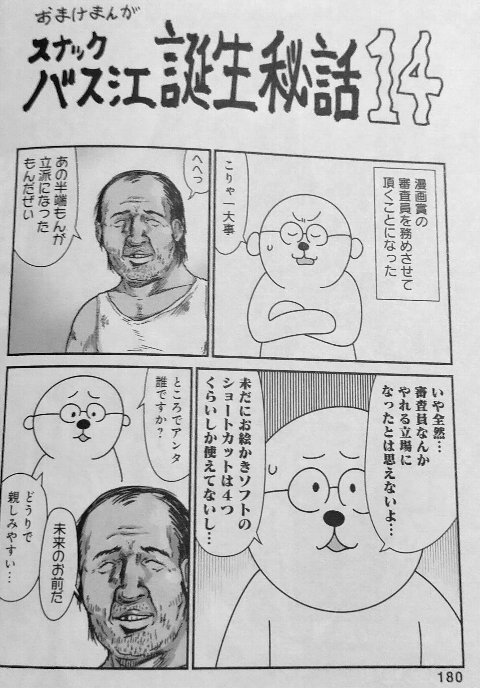 おまけまんが
スナック
バス江誕生秘話14
漫画賞の
審査員を務めさせて
頂くことになった
こりゃ一大事
へへっ
あの半端もんが
立派になった
もんだぜい
いや全然…
審査員なんか
やれる立場に
なったとは思えないよ…
未だにお絵かきソフトの
ショートカットは4つ
くらいしか使えてないし…
ところでアンタ
誰ですか?
未来のお前だ
どうりで
親しみやすい…
180